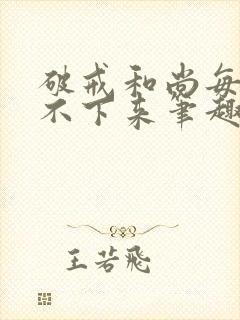 破戒和尚每
不下来笔趣
王若飞